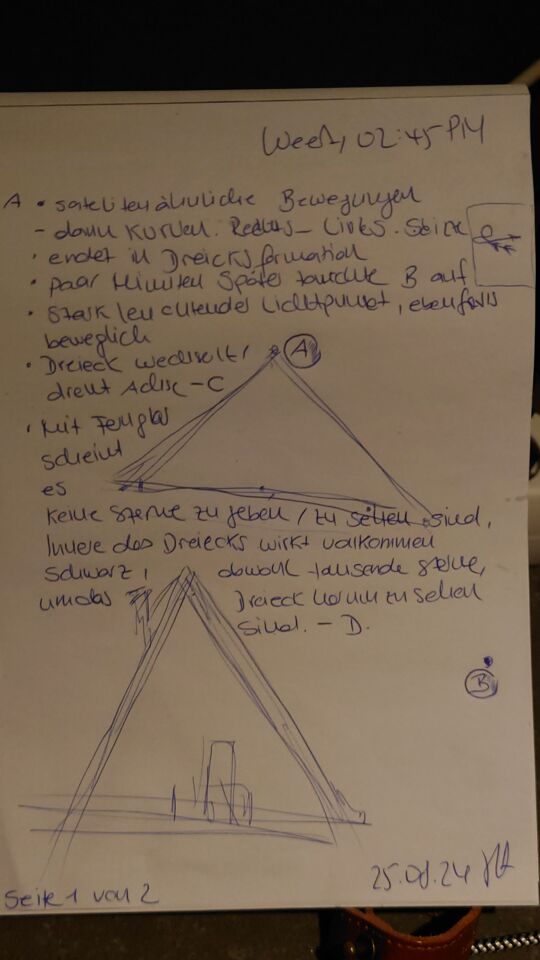 02:45 PM
A • satelitenähnliche Bewegungen
- dann Kurven. Rechts - Links.
• endet in Dreicksformation
• paar Minuten später tauchte B auf
• Stark leuchtender Lichtpunkt, ebenfalls
beweglich
• Dreieck wechselt,
dreht Achse - C
A
• Mit Fernglas
scheint
es
keine Sterne zu geben / zu sehen sind,
Innere des Dreiecks wirkt vollkommen
Schwarz, obwohl tausende Sterne,
um das Dreieck herum zu sehen
sind. - D.
B
25.08.24
Seite 1 von 2